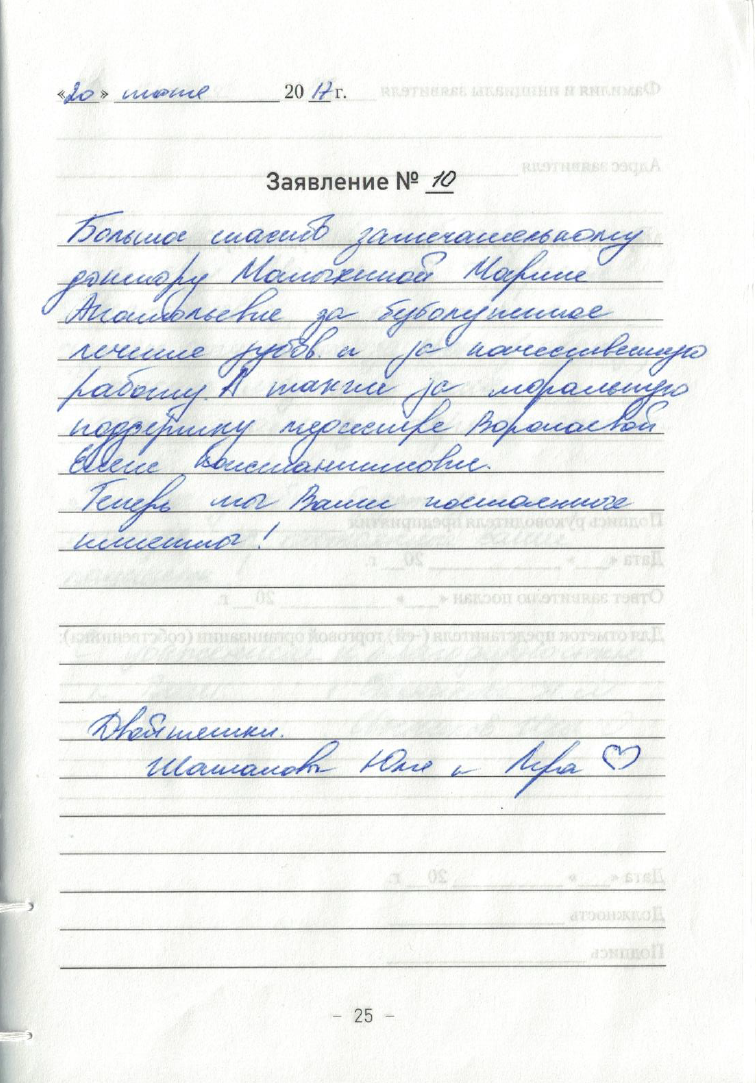 «20» июня 2017 г.
Заявление № 10
Большое спасибо замечательному
доктору Малыхиной Марине
Анатольевне за
лечение зубов и за качественную
работу. А также за моральную
поддержку медсестре Воропаевой
Елене Константиновне.
Теперь мы Ваши постоянные
клиенты!
Двойняшки.
Юля и Лера
- 25 -